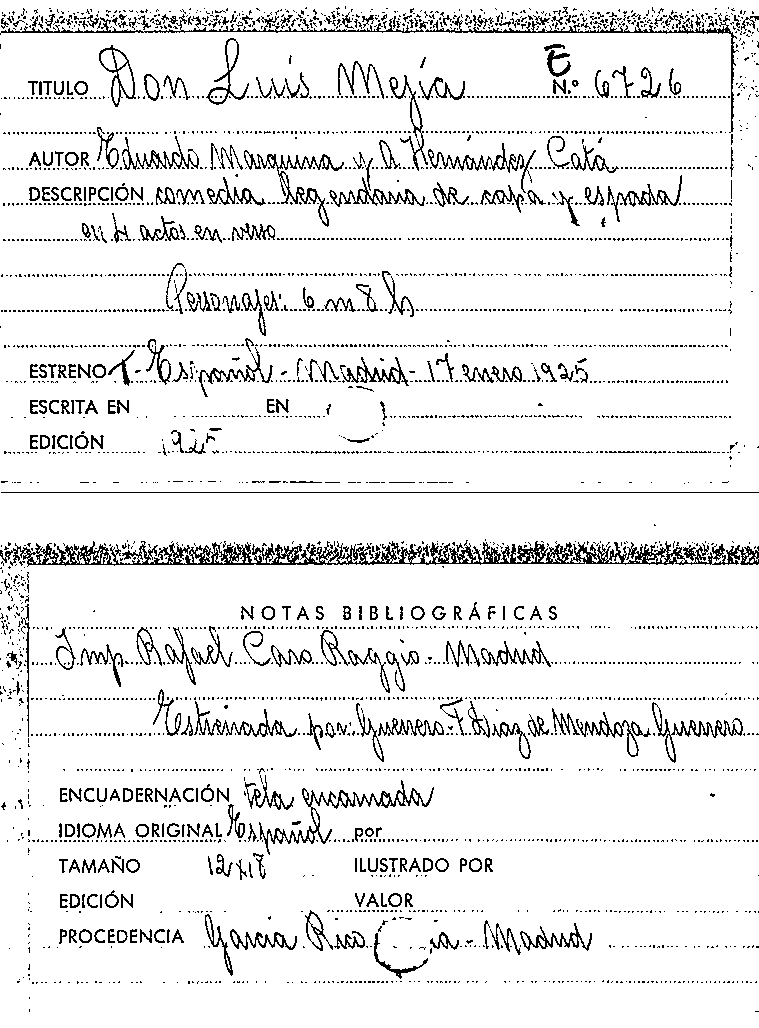 E
TITULO Don Luis Mejía N.º 6726
AUTOR Eduardo Marquina y A. Hernández Catá
DESCRIPCIÓN comedia legendaria de capa y espada
en 4 actos en verso
Personajes: 6 m 8 h
ESTRENO T. Español - Madrid - 17 enero 1925
ESCRITA EN EN
EDICIÓN 1925
NOTAS BIBLIOGRÁFICAS
Imp. Rafael Caro Raggio - Madrid
Estrenada por: Guerrero. F Diaz de Mendoza Guerrero
ENCUADERNACIÓN tela encarnada
IDIOMA ORIGINAL Español por
TAMAÑO 12x18 ILUSTRADO POR
EDICIÓN VALOR
PROCEDENCIA Garcia Rico - Madrid